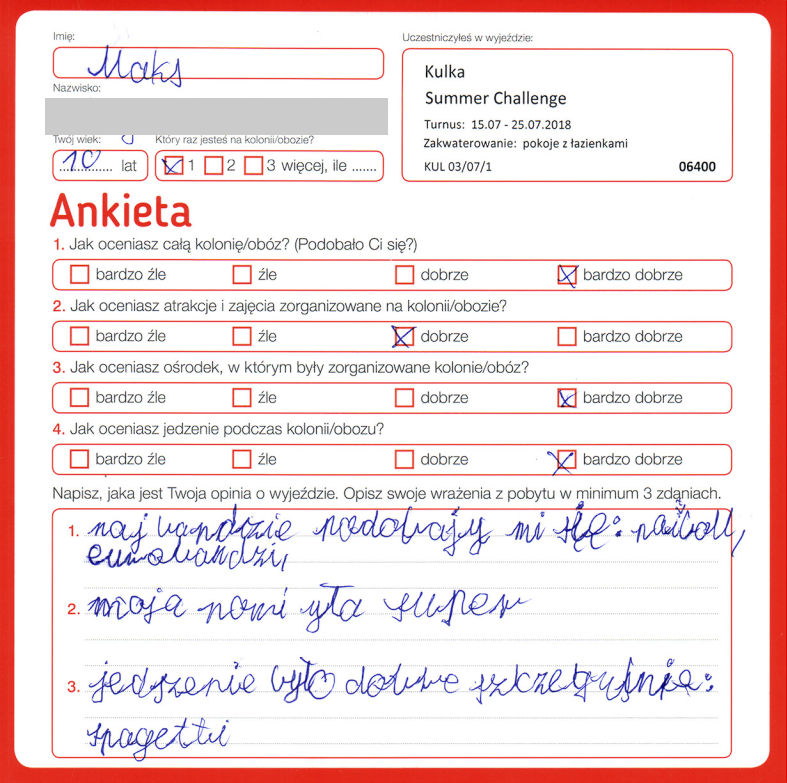 Imię:
Maks
Nazwisko:
Twój wiek:
10 lat
Który raz jesteś na kolonii/obozie?
1 2 3 więcej, ile .......
Uczestniczyłeś w wyjeździe:
Kulka
Summer Challenge
Turnus: 15.07 - 25.07.2018
Zakwaterowanie: pokoje z łazienkami
KUL 03/07/1 06400
Ankieta
1. Jak oceniasz całą kolonię/obóz? (Podobało Ci się?)
bardzo źle źle dobrze bardzo dobrze
2. Jak oceniasz atrakcje i zajęcia zorganizowane na kolonii/obozie?
bardzo źle źle dobrze bardzo dobrze
3. Jak oceniasz ośrodek, w którym były zorganizowane kolonie/obóz?
bardzo źle źle dobrze bardzo dobrze
4. Jak oceniasz jedzenie podczas kolonii/obozu?
bardzo źle źle dobrze bardzo dobrze
Napisz, jaka jest Twoja opinia o wyjeździe. Opisz swoje wrażenia z pobytu w minimum 3 zdaniach.
1. naj bardzie podobały mi się:
2. moja pani yła super
3. jedzenie było dobre szczegulnie:
spagetti